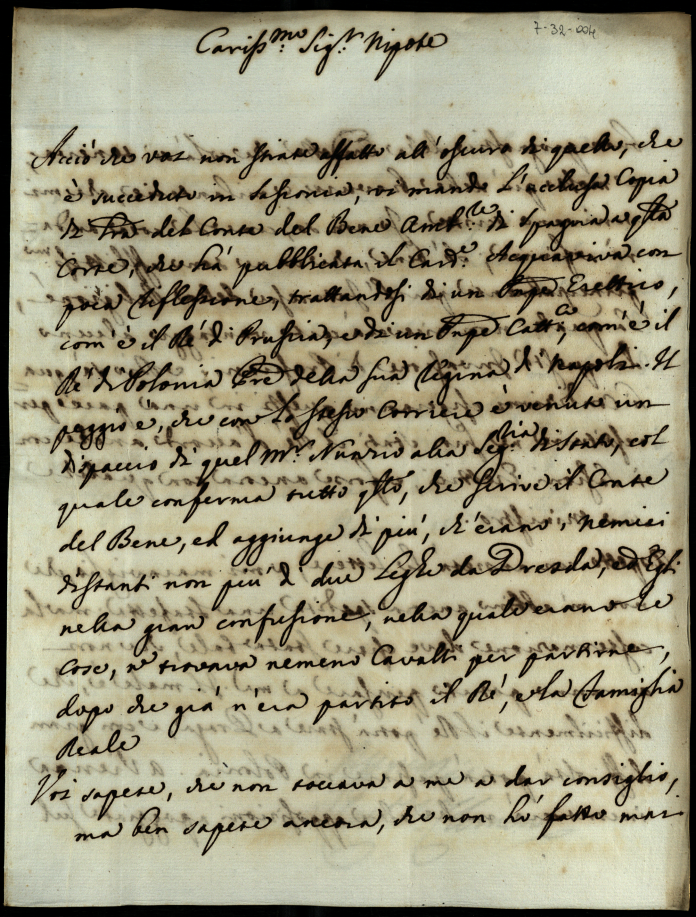 7-32-004
Cariss.mo Sig.r Nipote
Acciò che voi non siate affatto all'oscuro di quello, che
è succeduto in Sassonia, vi mando l'acclusa Copia
di Lra del Conte del Bene Amb.re di Spagna a qsta
Corte, che hà pubblicata il Card.e Acquaviva con
poca riflessione, trattandosi di un Pnpe Eretico,
com'è il Rè di Prussia, e di un Pnpe Catt.co, com'è il
Rè di Polonia Pre della sua Regina di Napoli. Il
peggio è, che con lo stesso Corriere è venuto un
dispaccio di quel M.r Nunzio alla Seg.ria di Stato, col
quale conferma tutto qsto, che scrive il Conte
del Bene, ed aggiunge di più, ch'erano i nemici
distanti non più di due Leghe da Dresda, ed Egli
nella gran confusione, nella quale erano le
cose, n° trovava nemeno Cavalli per partirne,
dopo che già n'era partito il Rè, e la Famiglia
Reale
Voi sapete, che non toccava a me a dar consiglio,
ma ben sapete ancora, che non hò fatto mai